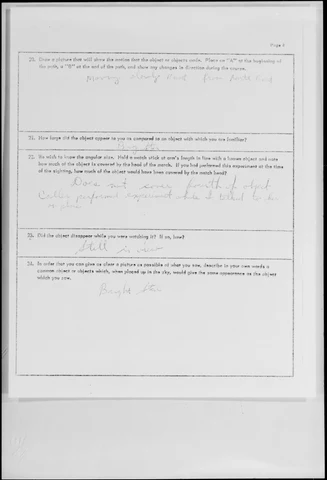 Page 4
30. Draw a picture that will show the motion that the object or objects made. Place an "A" at the beginning of
the path, a "B" at the end of the path, and show any changes in direction during the course.
Moving slowly East from North East
31. How large did the object appear to you as compared to an object with which you are familiar?
32. We wish to know the angular size. Hold a match stick at arm's length in line with a known object and note
how much of the object is covered by the head of the match. If you had performed this experiment at the time
of the sighting, how much of the object would have been covered by the match head?
Does not cover fourth of object
Caller performed experiment while I
33. Did the object disappear while you were watching it? If so, how?
Still in view
34. In order that you can give as clear a picture as possible of what you saw, describe in your own words a
common object or objects which, when placed up in the sky, would give the same appearance as the object
which you saw.
Bright Star